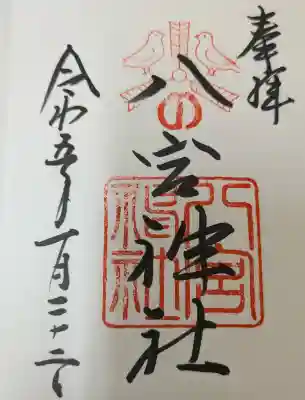 奉拝
八の宮神社
八宮
神社
令和五年一月二十二日